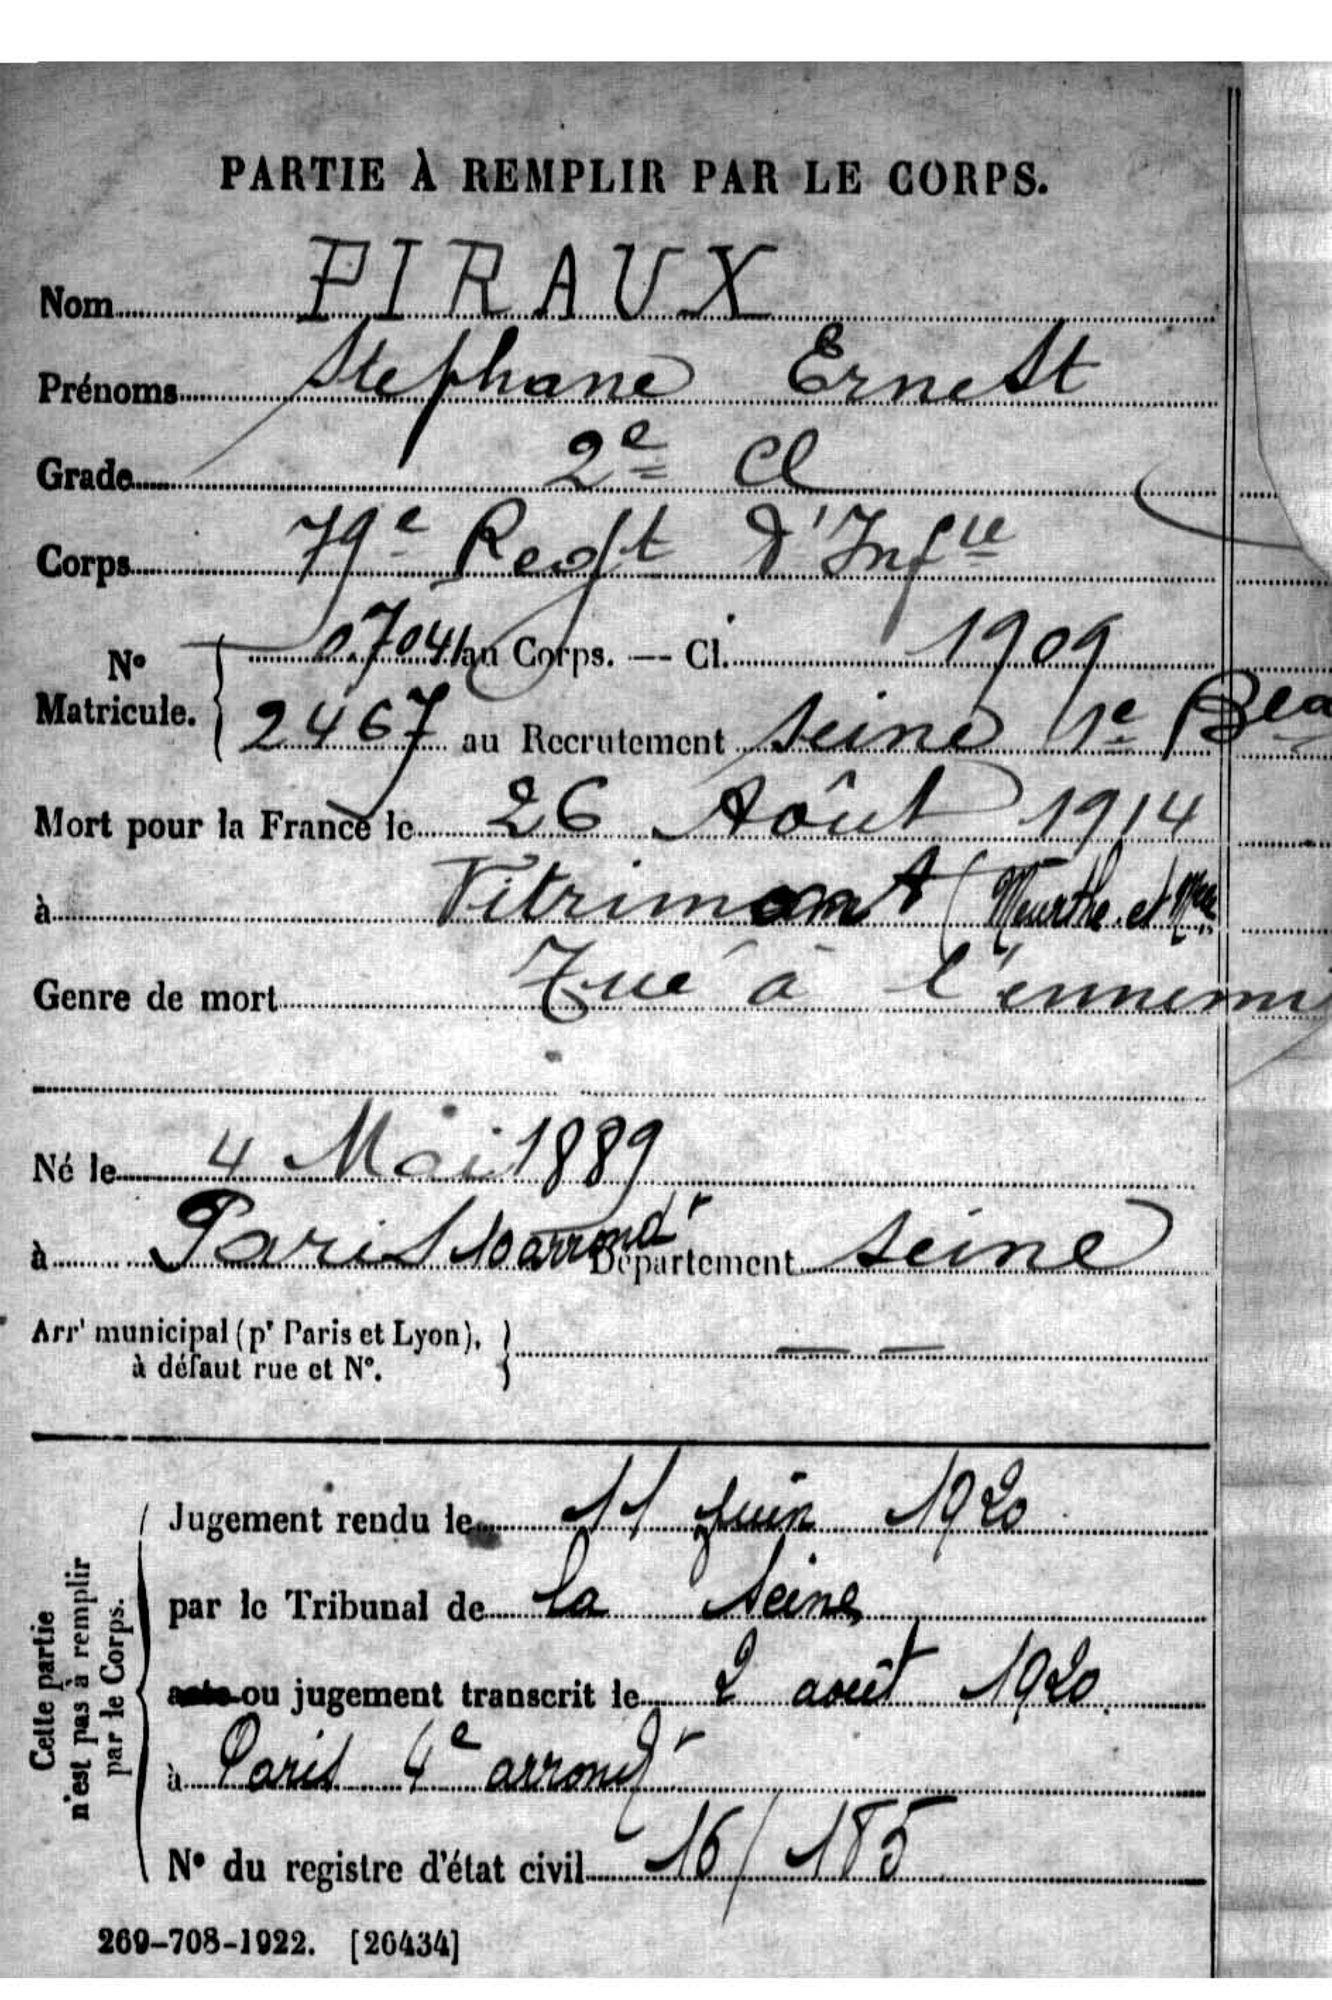 PARTIE À REMPLIR PAR LE CORPS.
Nom PIRAUX
Prénoms Stephane Ernest
Grade 2e Cl
Corps 79e Regt d'Infie
No Matricule. 0.7041 au Corps. — Cl. 1909
2467 au Recrutement Seine 1e Bau
Mort pour la France le 26 Aôut 1914
à Vitrimont (Meurthe et Melle
Genre de mort Tué à l'ennemi
Né le 4 Mai 1889
à Paris 10 arrondt Département Seine
Arrt municipal (pr Paris et Lyon), — —
à défaut rue et No.
Cette partie
n'est pas à remplir
par le Corps.
Jugement rendu le 11 juin 1920
par le Tribunal de la Seine
acte ou jugement transcrit le 2 août 1920.
à Paris 4e arrondt
No du registre d'état civil 16/185
269-708-1922. [26434]